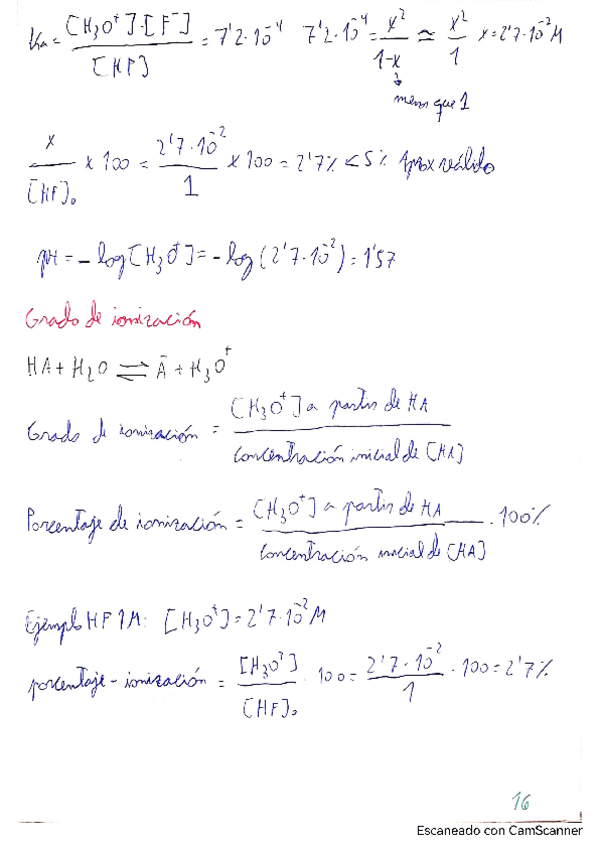 Ka = [H₃O⁺]·[F⁻] / [HF] = 7'2·10⁻⁴   7'2·10⁻⁴ = x² / 1-x ≃ x² / 1   x = 2'7·10⁻² M
menos que 1
x / [HF]₀ x 100 = 2'7·10⁻² / 1 x 100 = 2'7% < 5% Aprox válido
pH = - log [H₃O⁺] = - log (2'7·10⁻²) = 1'57
Grado de ionización
HA + H₂O ⇌ A⁻ + H₃O⁺
Grado de ionización = [H₃O⁺] a partir de HA / concentración inicial de [HA]
Porcentaje de ionización = [H₃O⁺] a partir de HA / concentración inicial de [HA] · 100%
Ejemplo HF 1M: [H₃O⁺] = 2'7·10⁻² M
porcentaje - ionización = [H₃O⁺] / [HF]₀ · 100 = 2'7·10⁻² / 1 · 100 = 2'7%
16
Escaneado con CamScanner